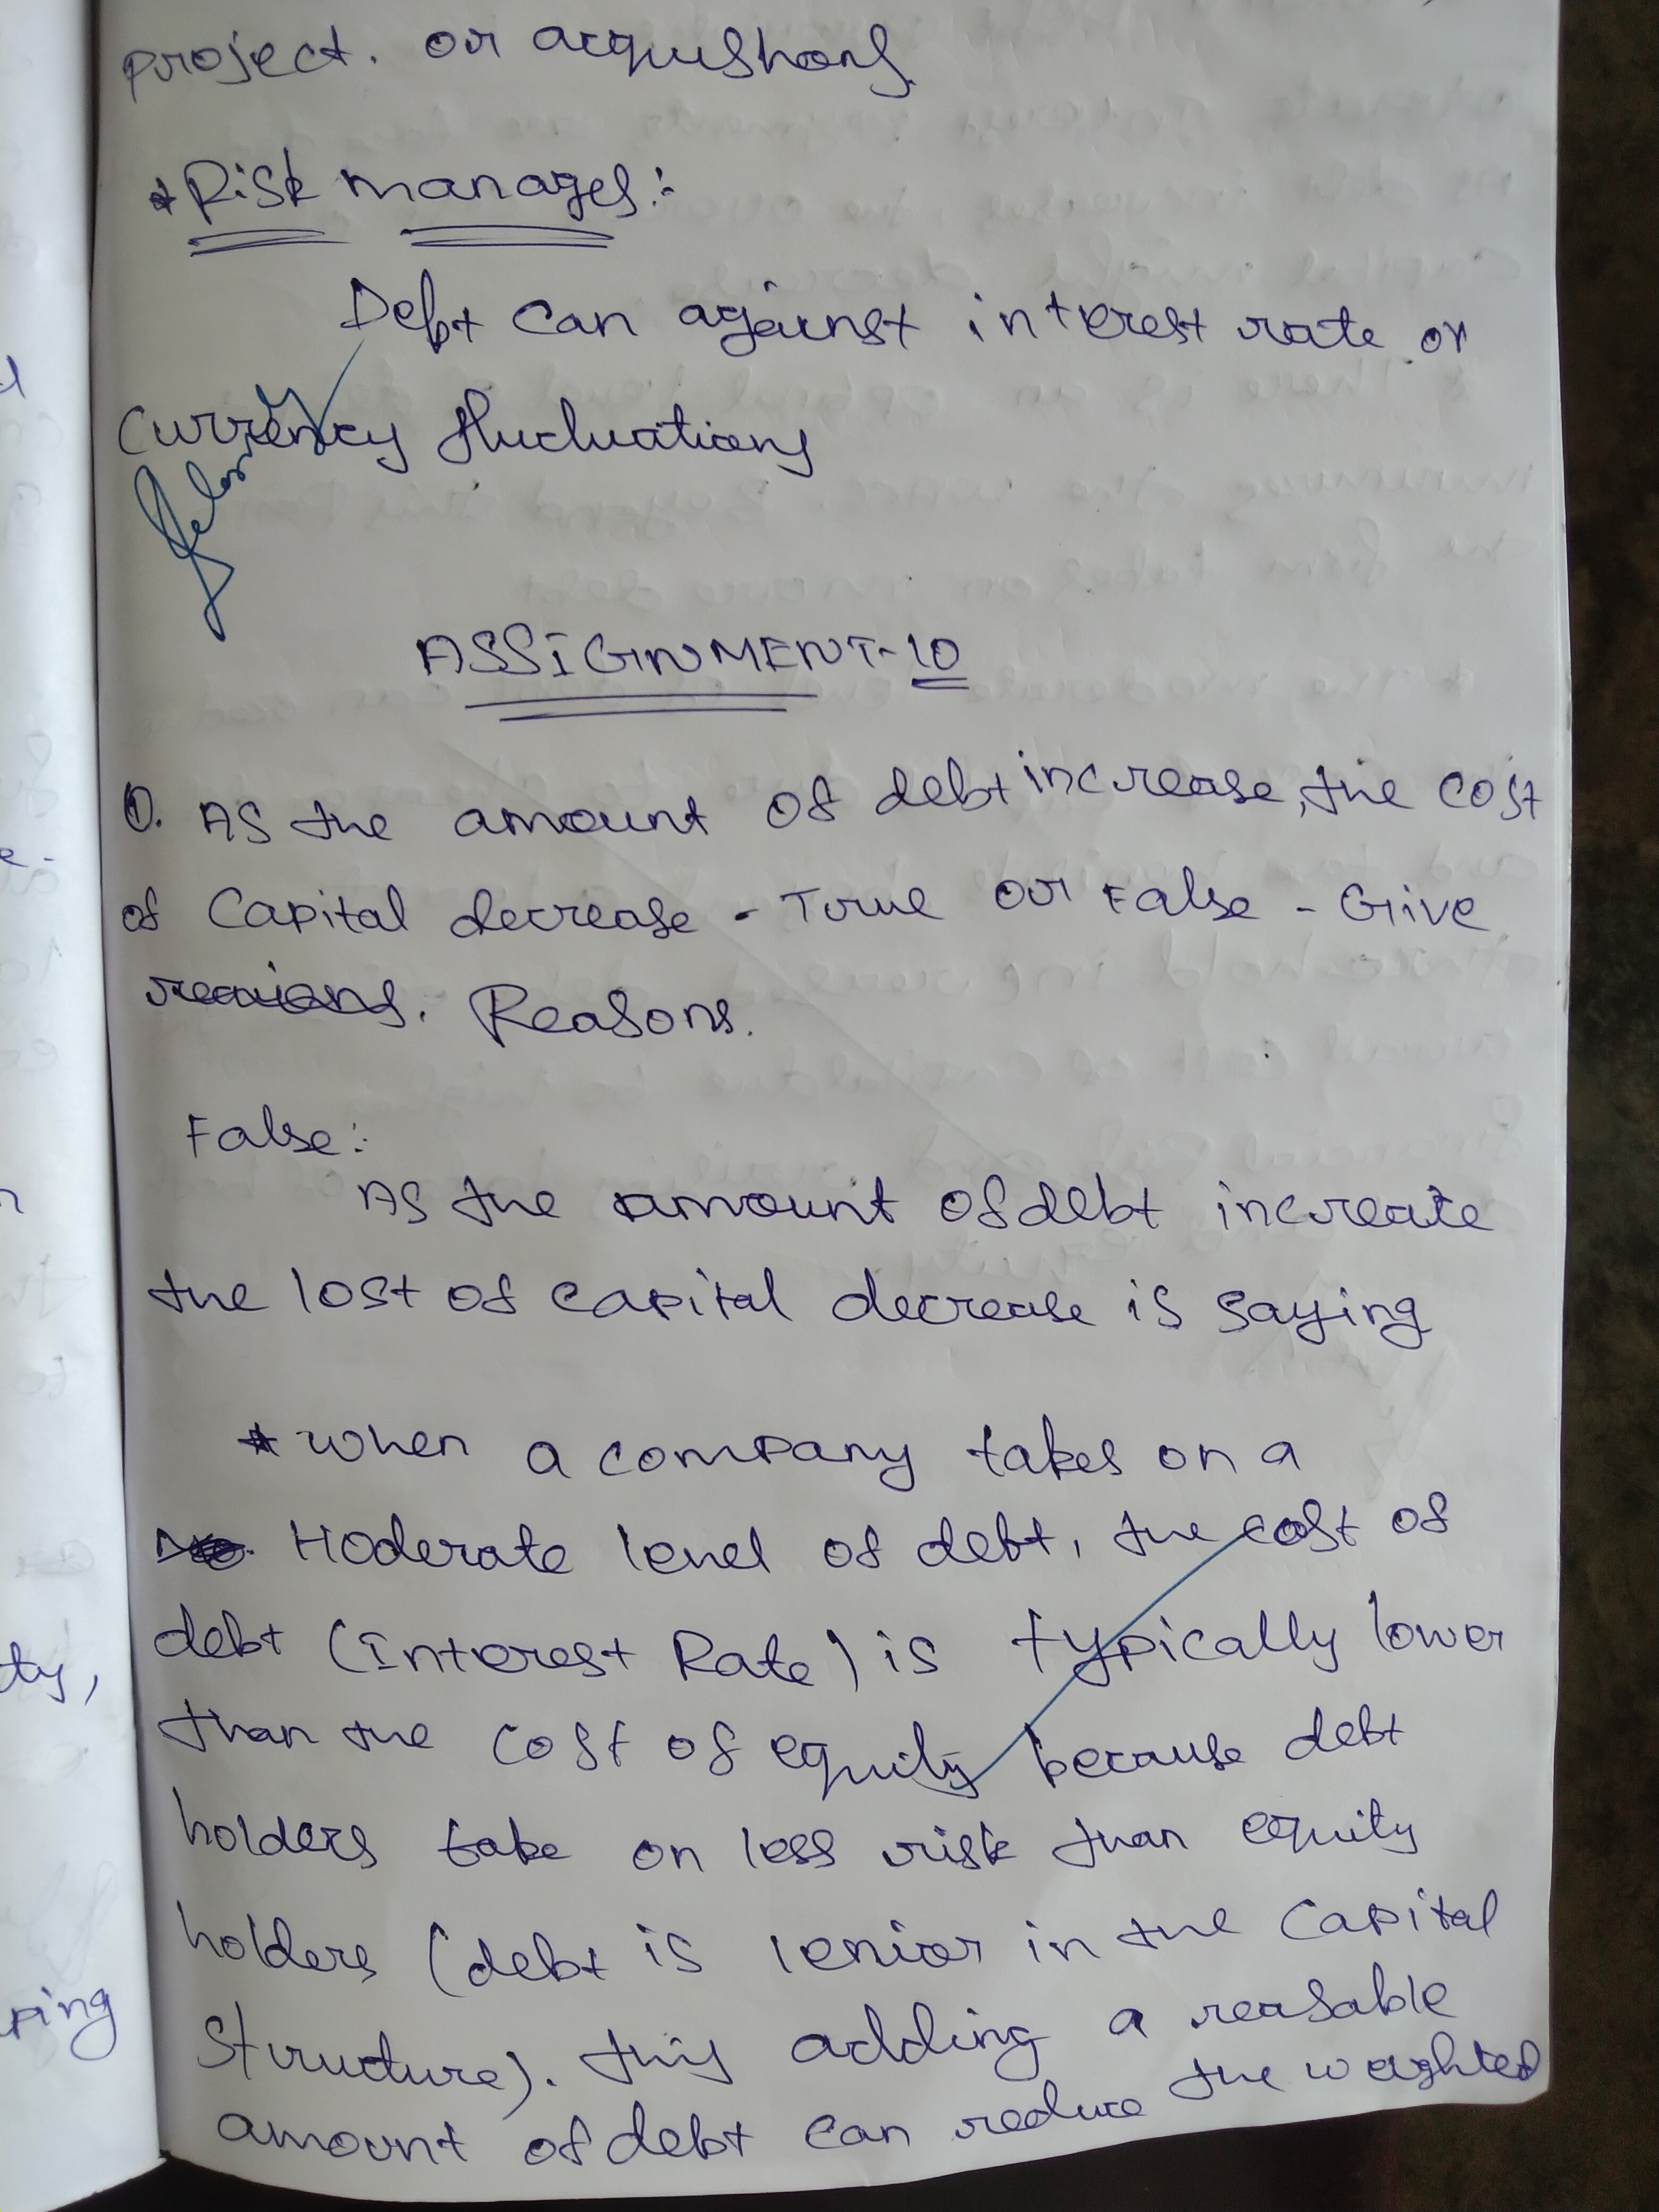 project. or acquishons
* Risk manages:-
Debt can against interest rate or
currency fluctuations
ASSIGNMENT-10
①. As the amount of debt increase, the cost
of capital decrease - True or False - Give
Reasons.
False:-
As the amount of debt increate
the lost of capital decrease is saying
* when a company takes on a
Hoderate level of debt, the cost of
debt (Interest Rate) is typically lower
than the cost of equity because debt
holders take on less risk than equity
holders (debt is senior in the capital
structure). this adding a reasable
amount of debt can reduce the weighted
ty,
ping